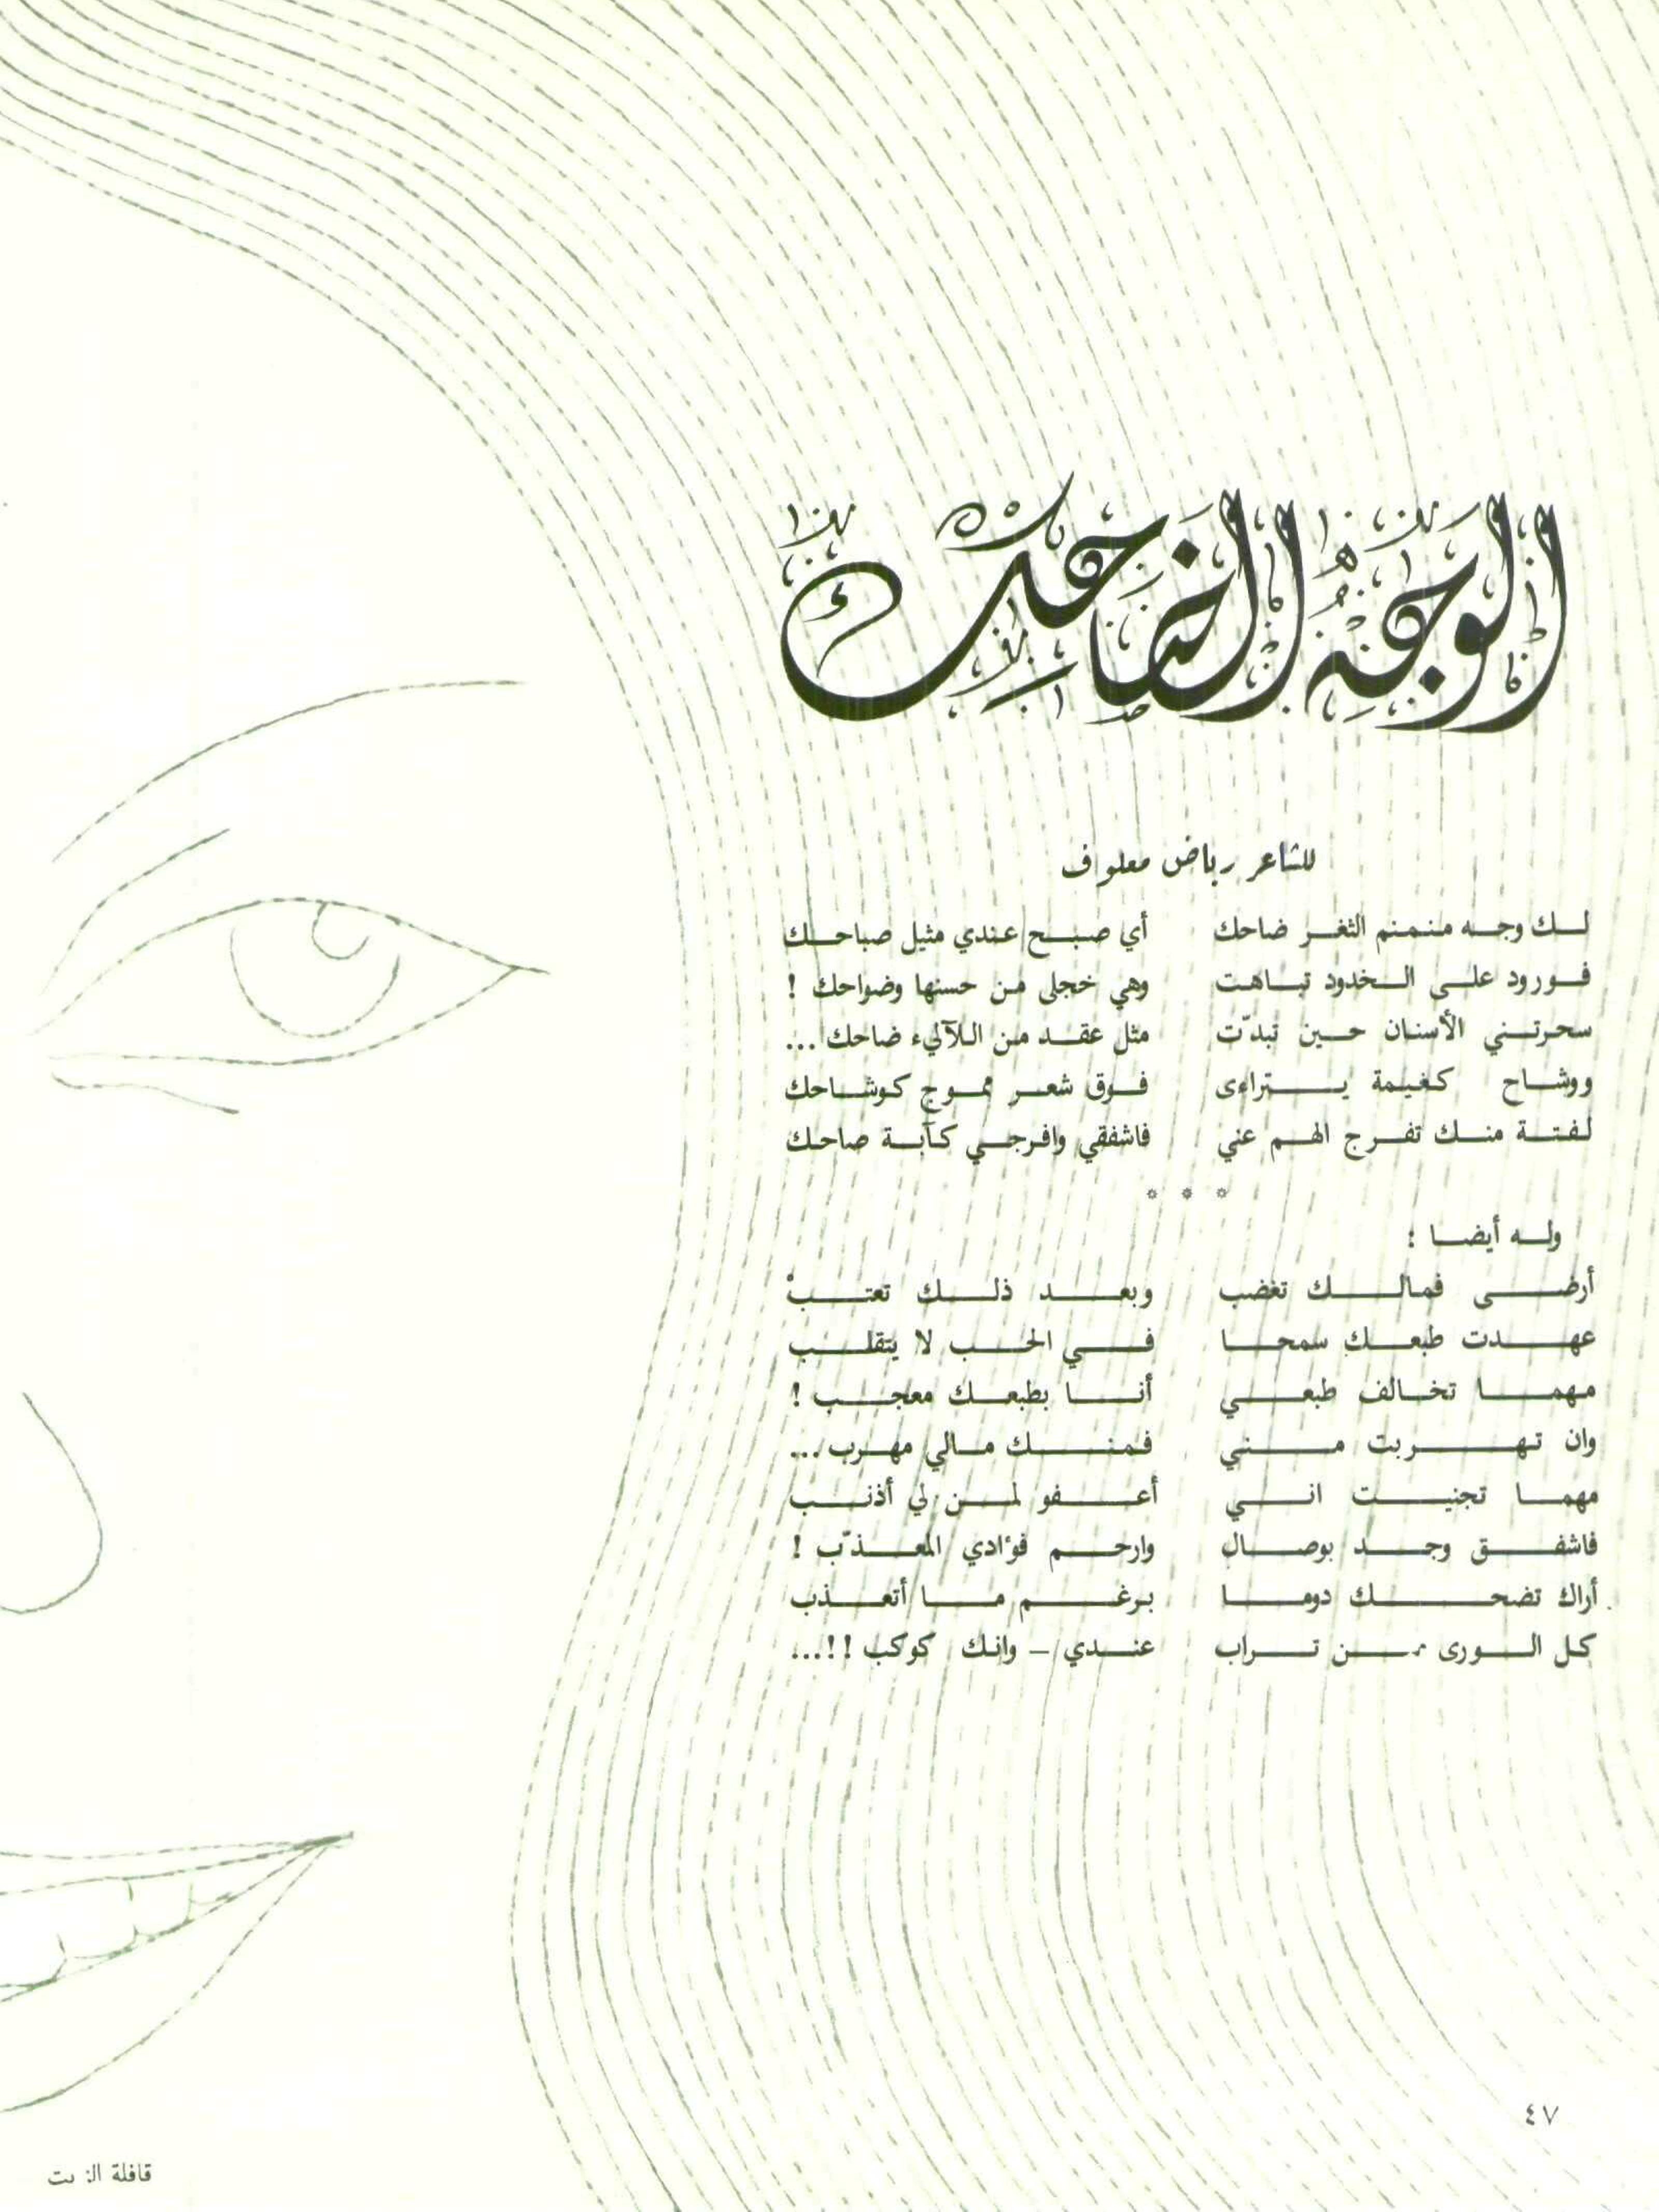 الوجه الضاحك
للشاعر رياض معلوف
لك وجه منمنم الثغر ضاحك أي صبح عندي مثيل صباحك
فورود على الخدود تباهت وهي خجلى من حسنها وضواحك !
سحرتني الأسنان حين تبدّت مثل عقد من اللآليء ضاحك ...
ووشاح كغيمة يتراءى فوق شعر مموج كوشاحك
لفتة منك تفرج الهم عني فاشفقي وافرجي كآبة صاحك
* * *
وله أيضا :
أرضى فمالك تغضب وبعد ذلك تعتبْ
عهدت طبعك سمحا في الحب لا يتقلب
مهما تخالف طبعي أنا بطبعك معجب !
وان تهربت مني فمنك مالي مهرب ...
مهما تجنيت اني أعفو لمن لي أذنب
فاشفق وجد بوصال وارحم فؤادي المعذّب !
أراك تضحك دوما برغم ما أتعذب
كل الورى من تراب عندي – وانك كوكب !! ...
٤٧
قافلة الزيت